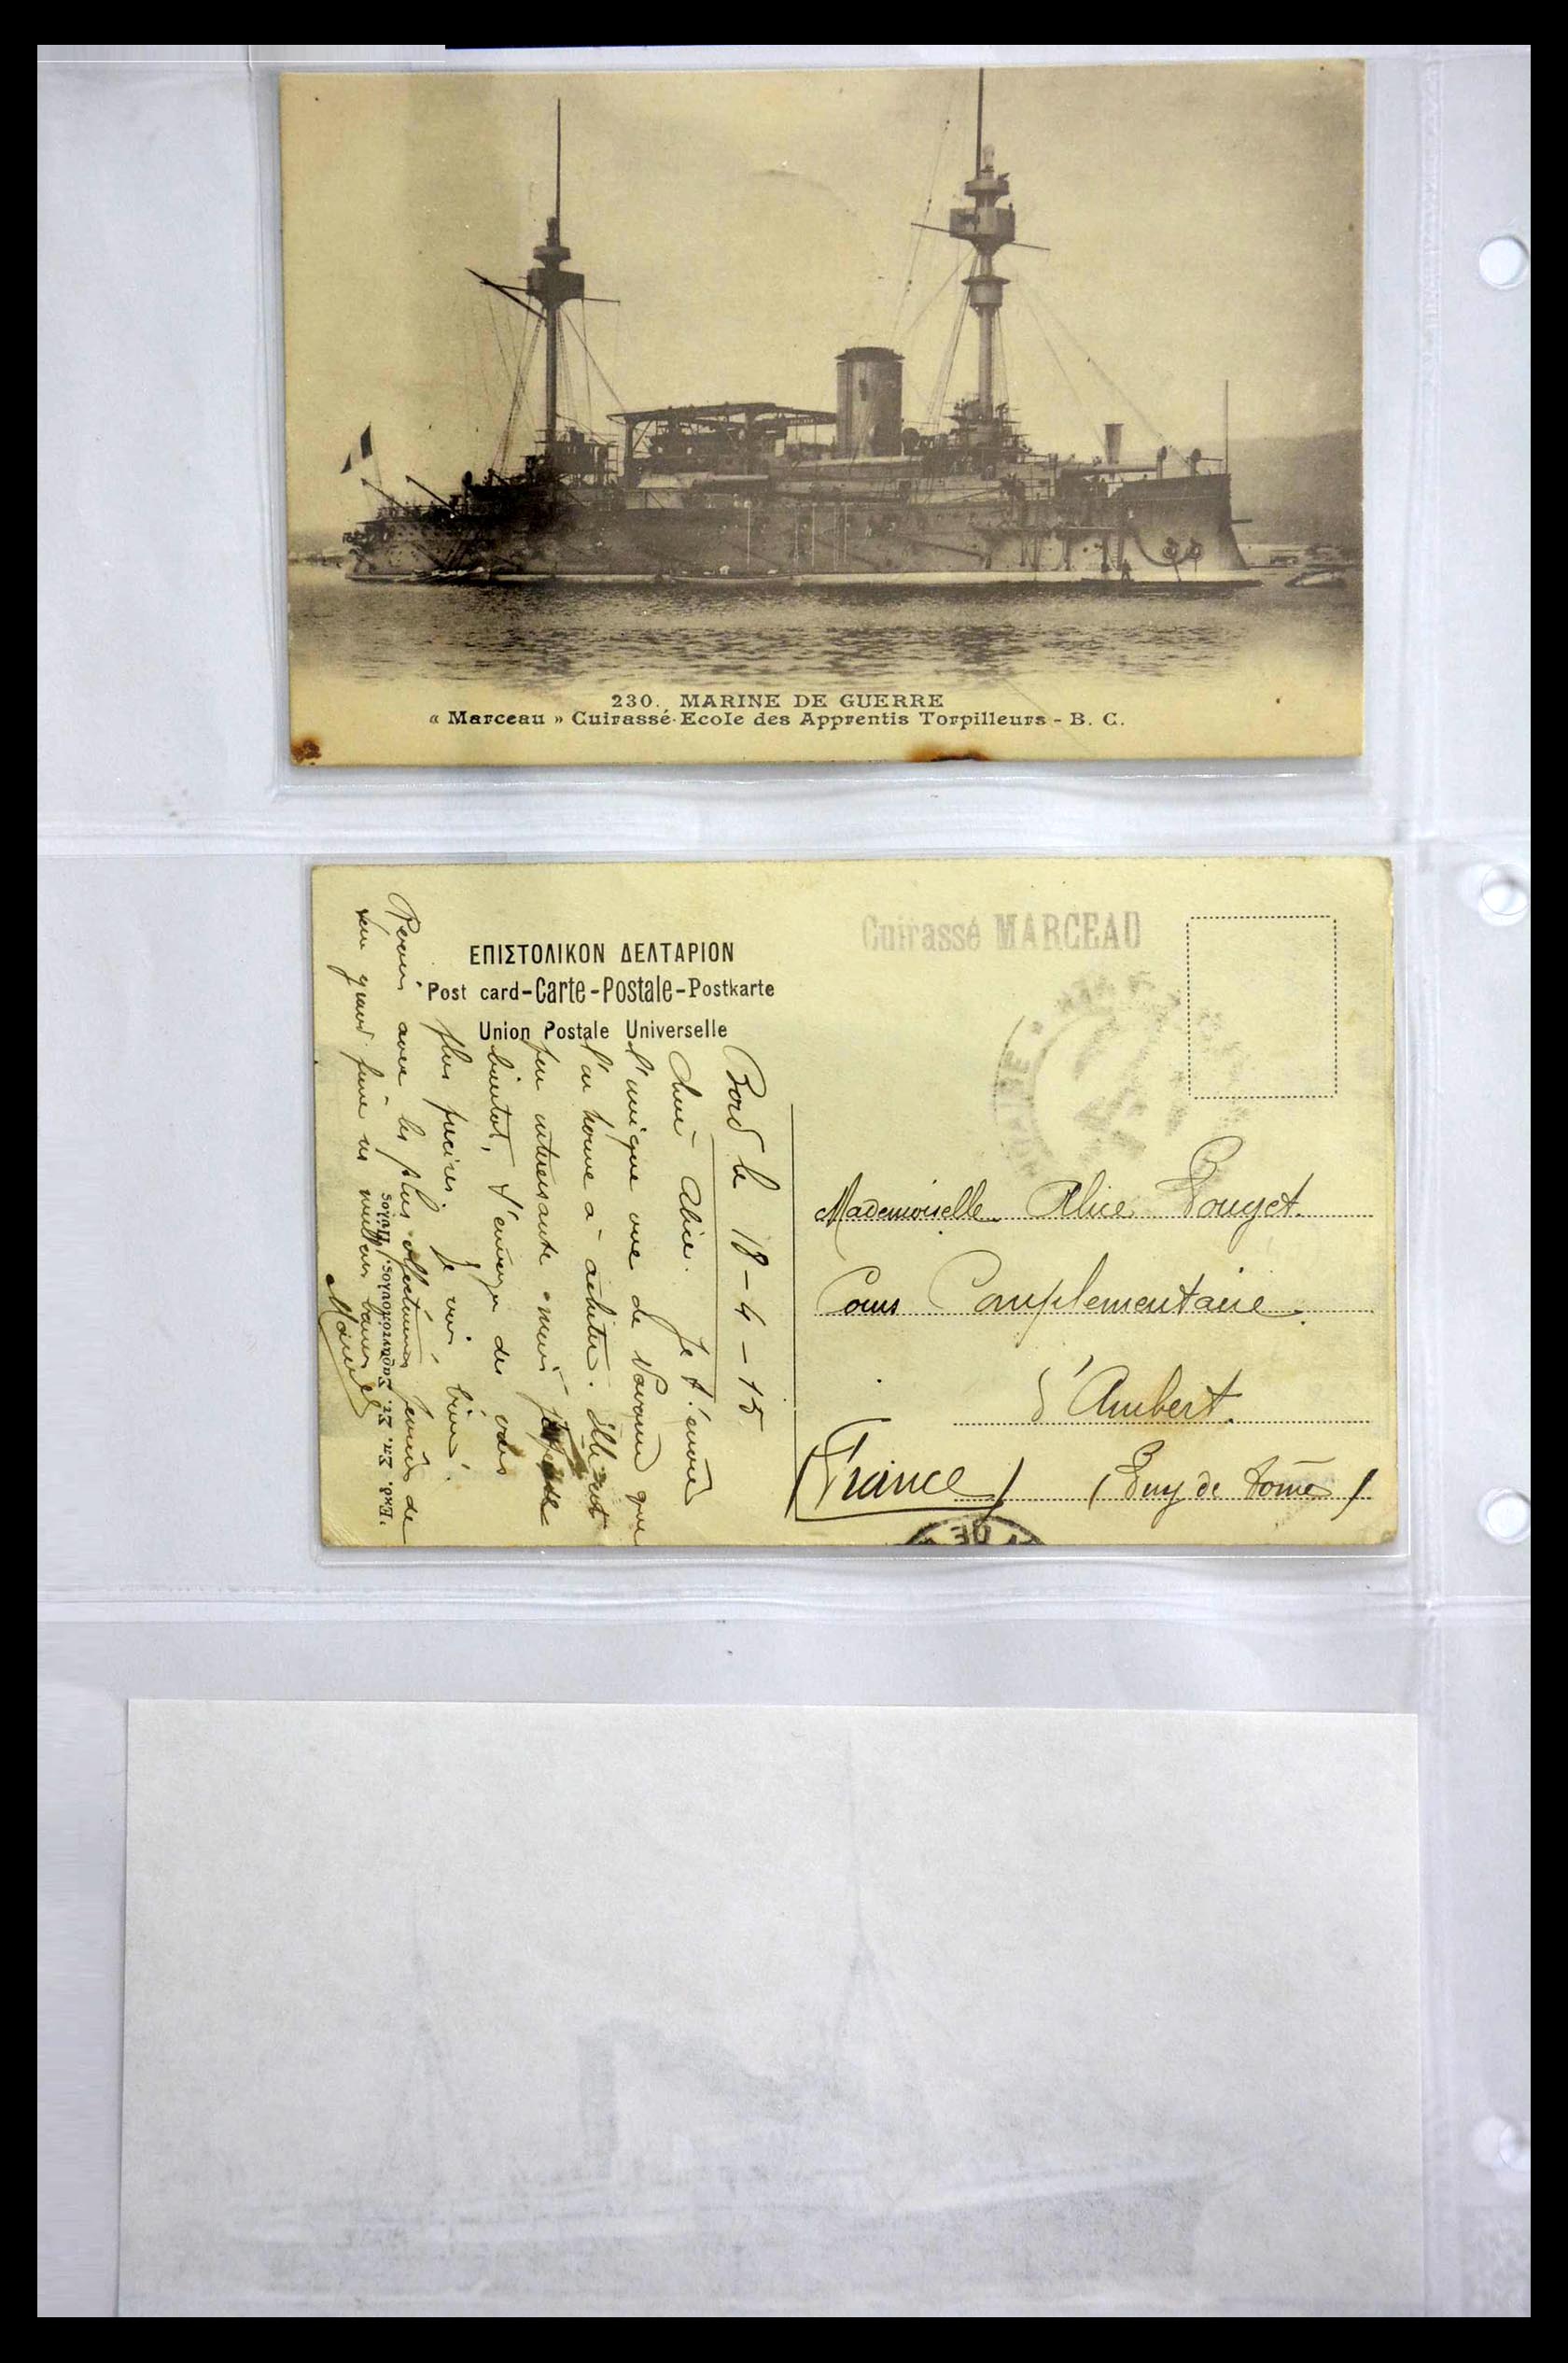 230. MARINE DE GUERRE
« Marceau » Cuirassé-Ecole des Apprentis Torpilleurs - B. C.
Cuirassé MARCEAU
ΕΠΙΣΤΟΛΙΚΟΝ ΔΕΛΤΑΡΙΟΝ
Post card-Carte-Postale-Postkarte
Union Postale Universelle
Bord le 18-4-15
Chère Alice. Je t'envoie
l'unique vue de Navarin que
j'ai trouvé à acheter. Elle est
peu intéressante mais
bientôt, t'envoyer des vues
plus jolies. Je vais bien.
Reçois avec les plus de
ton grand frère ses meilleurs baisers
Marcel
Mademoiselle Alice Pouget.
Cours Complementaire
d'Ambert.
(France) (Puy de Dôme)